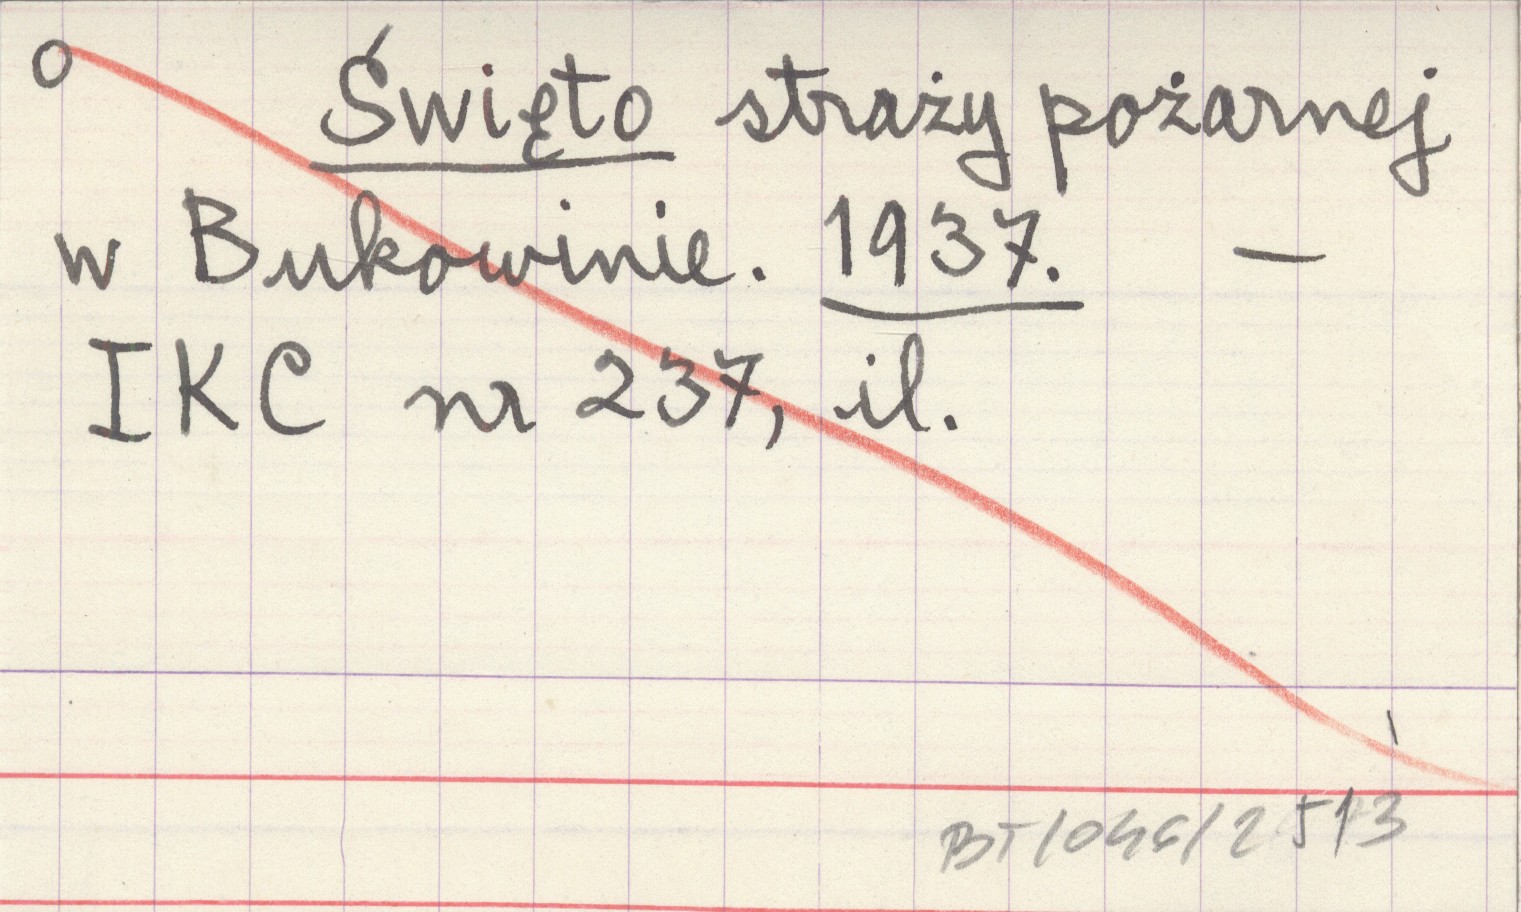 O Święto straży pożarnej
w Bukowinie. 1937. —
IKC nr 237, il.
BT/046/2513